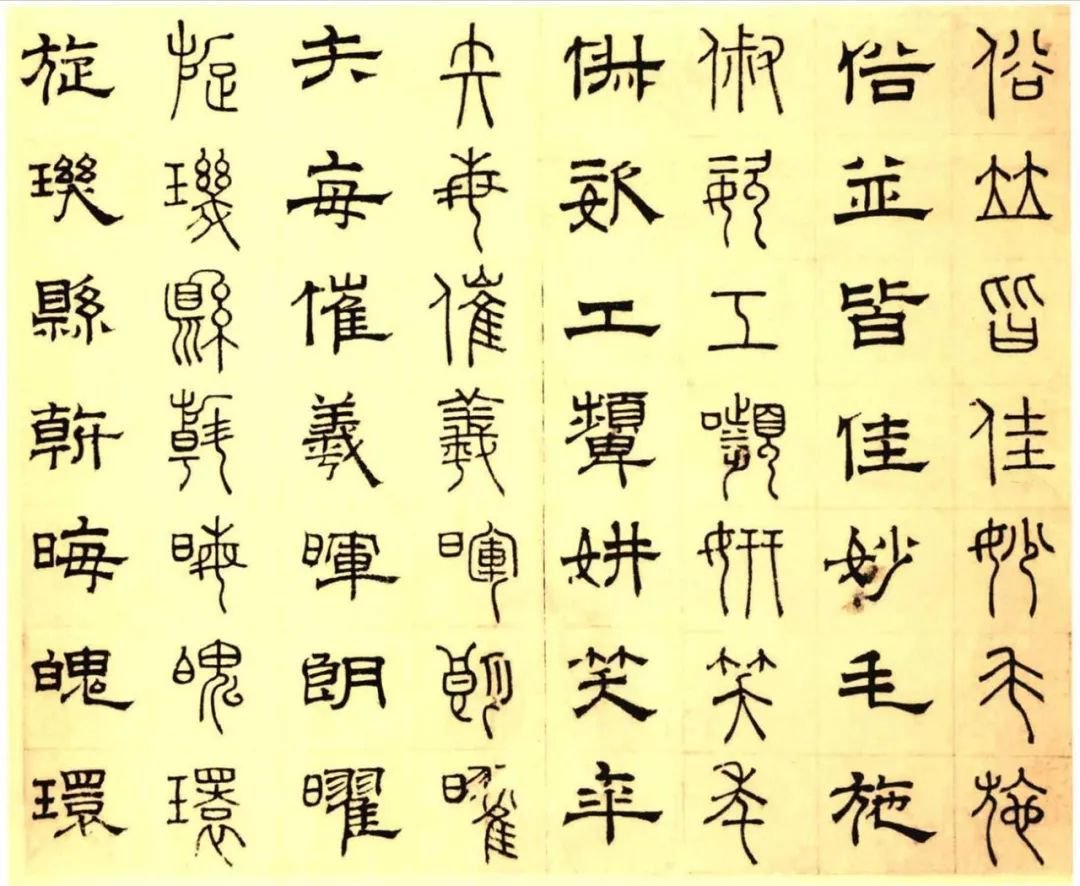 俗竝皆佳妙毛施
俗並皆佳妙毛施
俶姿工嚬妍笑年
俶姿工顰妍笑年
矢每催羲暉朗曜
矢每催羲暉朗曜
旋璣縣斡晦魄環
旋璣縣斡晦魄環